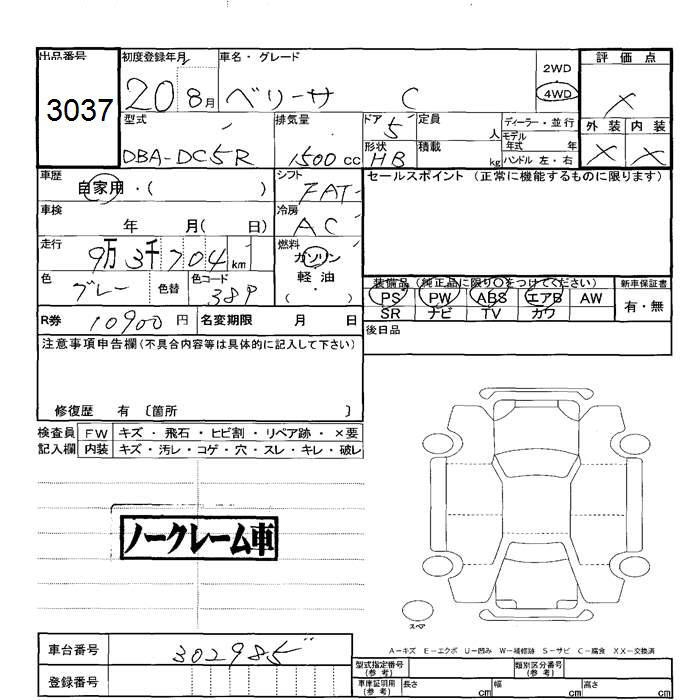 出品番号 初度登録年月 車名・グレード 評価点
3037 20 8月 ベリーサ C 2WD 4WD ×
型式 排気量 ドア 5 定員 人 ディーラー・並行 外装 内装
DBA-DC5R 1500 cc 形状 HB 積載 kg モデル年式 年 ハンドル 左・右 × ×
車歴 自家用・( ) シフト FAT セールスポイント (正常に機能するものに限ります)
車検 年 月( 日) 冷房 AC
走行 9万3千704km 燃料 ガソリン 軽油 ・( )
色 グレー 色替 色コード 38P 装備品(純正品に限り○をつけてください) 新車保証書
PS PW ABS エアB AW 有・無
SR ナビ TV カワ
R券 10900円 名変期限 月 日 後日品
注意事項申告欄(不具合内容等は具体的に記入して下さい)
修復歴 有 〔箇所 〕
検査員 FW キズ・飛石・ヒビ割・リペア跡・×要
記入欄 内装 キズ・汚レ・コゲ・穴・スレ・キレ・破レ
ノークレーム車
スペア
A-キズ E-エクボ U-凹み W-補修跡 S-サビ C-腐食 XX-交換済
車台番号 302985 型式指定番号(参考) 類別区分番号(参考)
登録番号 車庫証明用(参考) 長さ cm 幅 cm 高さ cm